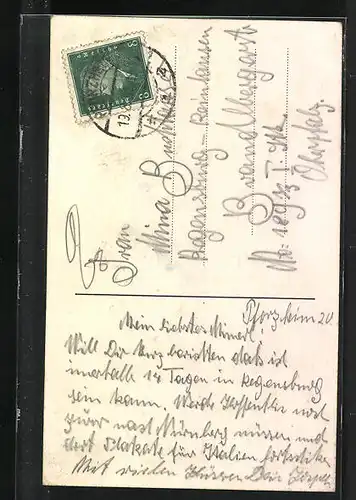 Frau
Mina
Regensburg-Reinhausen
Brandlbergstr
No: 189 1/3 I. Stk.
Oberpfalz
Pforzheim 20.
Mein liebstes Minerl!
Will Dir kurz berichten daß ich
innerhalb 14 Tagen in Regensburg
sein kann. Werde hoffentlich noch
zuvor nach Nürnberg müssen und
dort Plakate für Italien
Mit vielen Küssen Dein